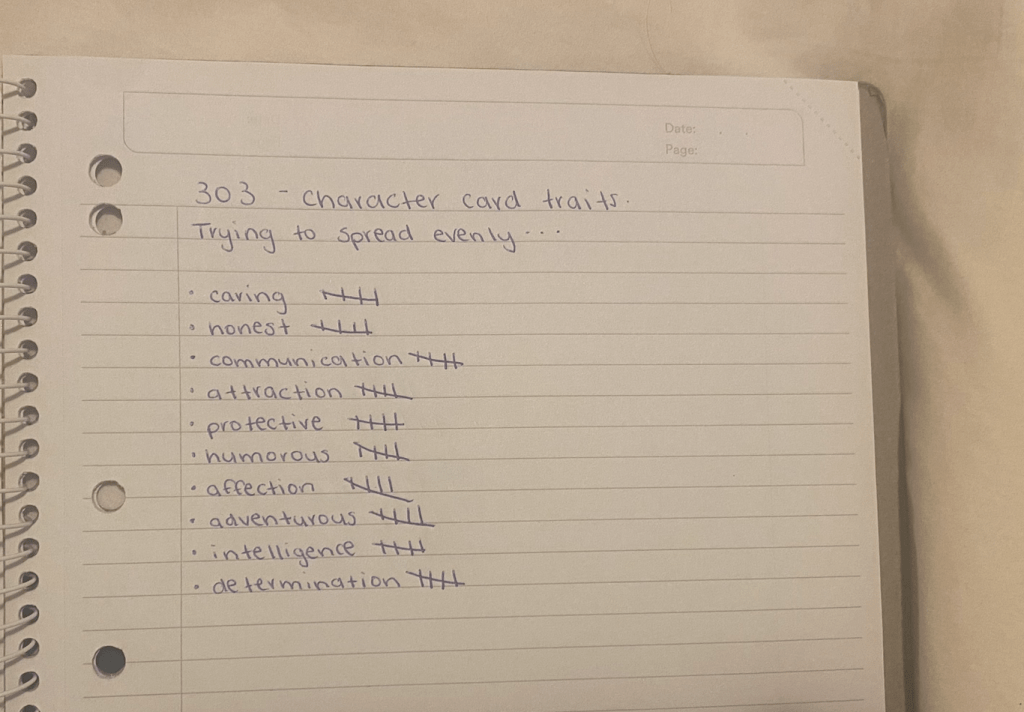 Date:
Page:
303 - character card traits.
Trying to spread evenly...
• caring 卌
• honest 卌
• communication 卌
• attraction 卌
• protective 卌
• humorous 卌
• affection 卌
• adventurous 卌
• intelligence 卌
• determination 卌